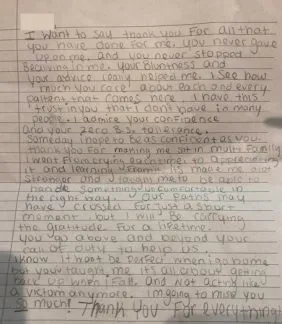 I Want to say thank you For all that
you have done for me. you never gave
up on me. and you never stopped
Beleiving in me. Your bluntness and
your advice really helped me. I see how
much you care about each and every
patient that comes here. I have this
trust in you that I don't have in many
people. I admire your confidence
and your zero B.S. tolerance.
Someday i hope to be as confident as you.
thank you For making me sit in multi Family
I went From crying each time to appreciating
it and learning From it. its made me alot
stronger and taught me to be able to
handle Something uncomfortable in
the right way. Our paths may
have crossed for just a short
moment but I will Be carrying
the gratitude For a lifetime.
You go above and beyond your
call of duty to help us.
I know it wont be perfect when i go home
but your taught me it's all about getting
back up when i Fall and Not acting like
a victom anymore. im going to miss you
So much! Thank you For everything!